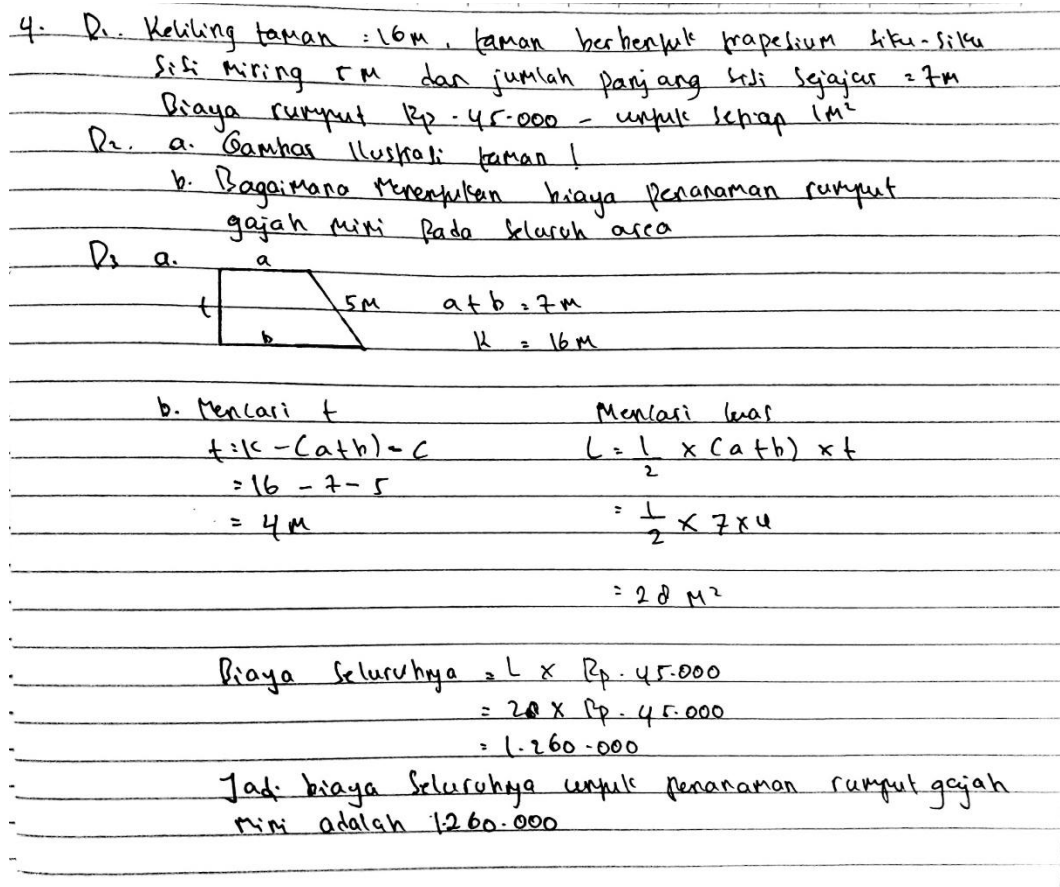 4. D1. Keliling taman : 16 m, taman berbentuk trapesium siku-siku
sisi miring 5 m dan jumlah panjang sisi sejajar = 7m
Biaya rumput Rp. 45.000 - untuk setiap 1m²
D2. a. Gambar Ilustrasi taman !
b. Bagaimana menentukan biaya penanaman rumput
gajah mini pada seluruh area
D3 a. a
t 5 m a + b = 7 m
b K = 16 m
b. Mencari t Mencari luas
t = K - (a+b) - c L = 1/2 x (a+b) x t
= 16 - 7 - 5
= 4 m = 1/2 x 7 x 4
= 28 m²
Biaya seluruhnya = L x Rp. 45.000
= 28 x Rp. 45.000
= 1.260.000
Jadi biaya seluruhnya untuk penanaman rumput gajah
mini adalah 1.260.000